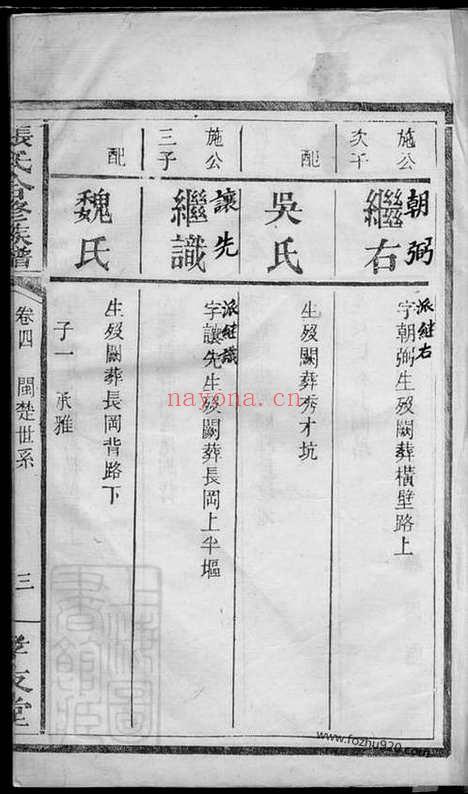 施公
次子
繼右
朝弼
派繼右
字朝弼生歿闕葬橫壁路上
配
吳氏
生歿闕葬秀才坑
施公
三子
繼識
讓先
派繼識
字讓先生歿闕葬長岡上半塸
配
魏氏
生歿闕葬長岡背路下
子一 承雅
張氏合修族譜
卷四 閩楚世系
三
孝友堂
nayona.cn
www.fozhu920.com